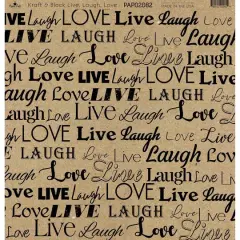 Kraft & Black Live, Laugh, Love PAP02082
LOVE Live Laugh
LIVE LAUGH Love Live Laugh
Laugh LOVE Live Laugh
Love LIVE Laugh Love Live
Live LAUGH Love Live
Laugh Love Live LAUGH
Love LIVE Laugh LOVE Live
Laugh LOVE Live Laugh Love
LOVE LIVE LAUGH Love Live
Laugh LOVE Live Laugh
Love LIVE Laugh Love Live
Live LAUGH Love Live